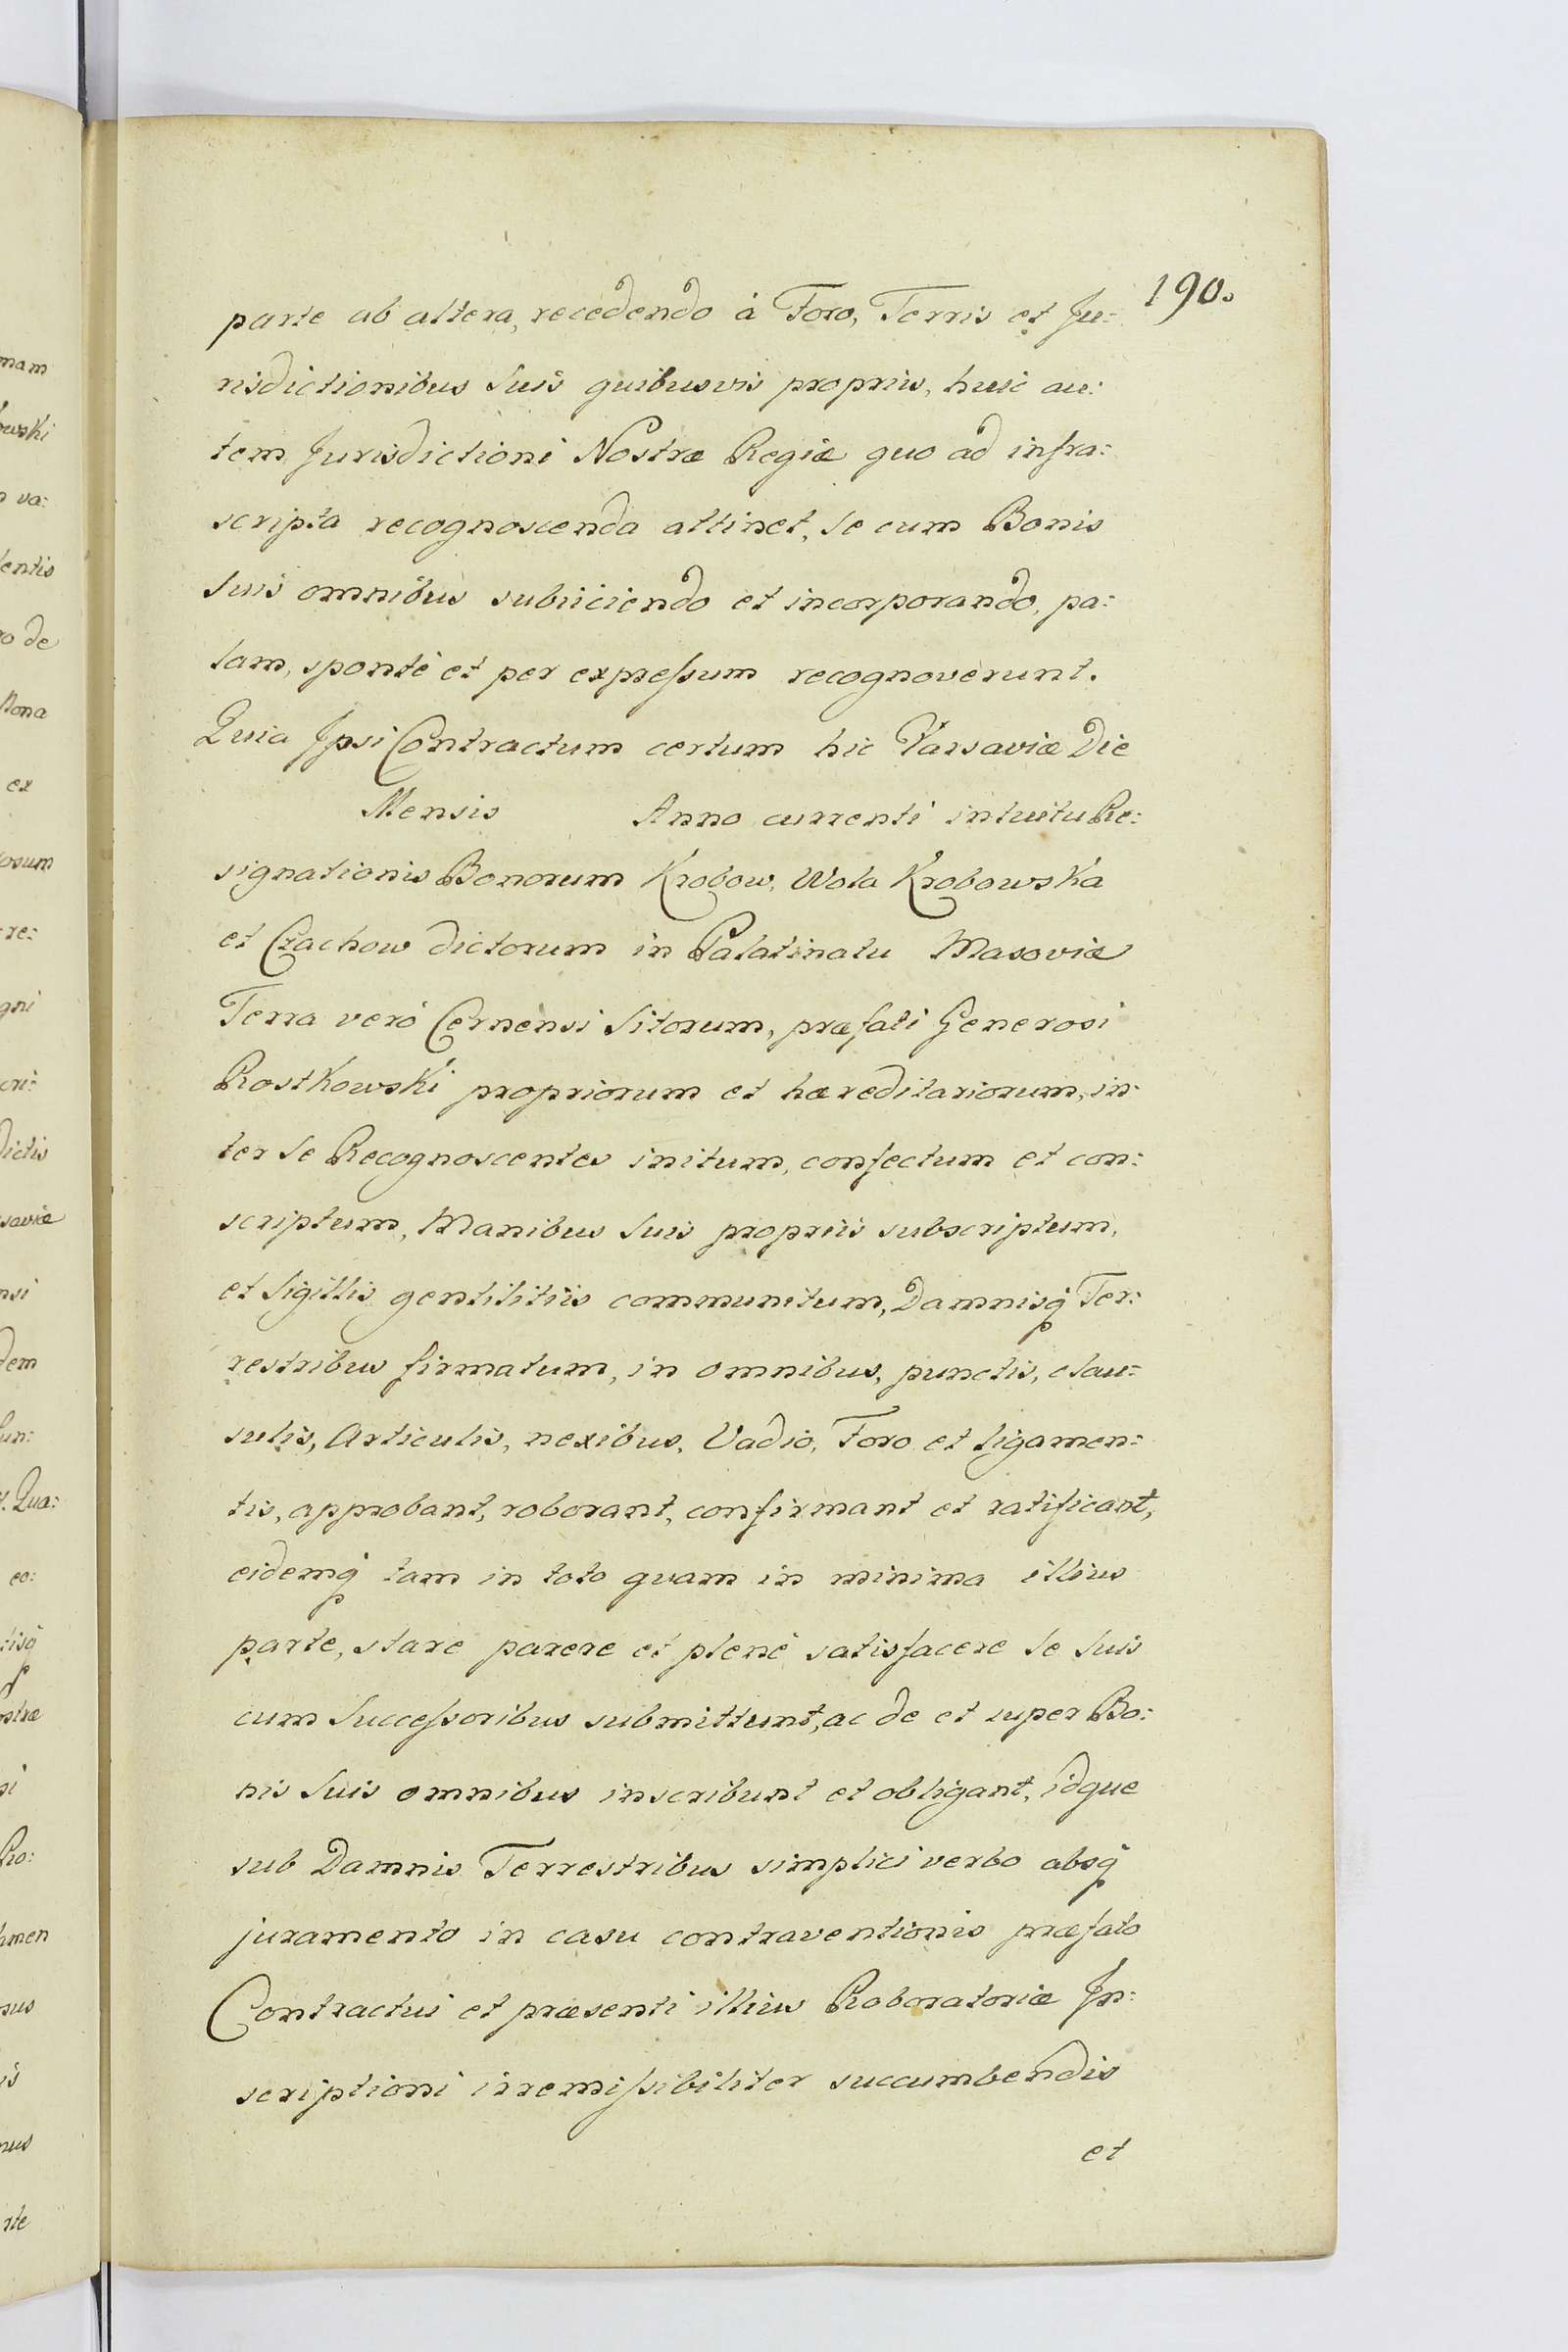 190.
parte ab altera, recedendo à Foro, Terris et Ju:
risdictionibus suis quibusvis propriis, huic au:
tem Jurisdictioni Nostræ Regiæ quo ad infra:
scripta recognoscenda attinet, se cum Bonis
suis omnibus subiiciendo et incorporando, pa:
lam, sponte et per expreſsum recognoverunt.
Quia Ipsi Contractum certum hic Varsaviæ Die
Mensis Anno currenti intuitu Re:
signationis Bonorum Krobow, Wola Krobowska
et Czachow dictorum in Palatinatu Masoviæ
Terra verò Cernensi sitorum, præfati Generosi
Rostkowski propriorum et hæreditariorum, in:
ter se Recognoscentes initum, confectum et con:
scriptum, Manibus suis propriis subscriptum,
et sigillis gentilitiis communitum, Damnisq́ Ter:
restribus firmatum, in omnibus, punctis, clau:
sulis, Articulis, nexibus, Vadio, Foro et ligamen:
tis, approbant, roborant, confirmant et ratificant,
eidemq́ tam in toto quam in minima illius
parte, stare parere et plenè satisfacere se suis
cum Succeſsoribus submittunt, ac de et super Bo:
nis suis omnibus inscribunt et obligant, idque
sub Damnis Terrestribus simplici verbo absq́
juramento in casu contraventionis præfato
Contractui et præsenti illius Roboratoriæ In:
scriptioni irremiſsibiliter succumbendis
et
mam
owski
va:
entis
ro de
Bona
ex
osum
re:
gni
cri:
dictis
saviæ
nsi
dem
un:
Qua:
eo:
tisq́
ostræ
ni
Ro:
amen
sus
is
nus
rte